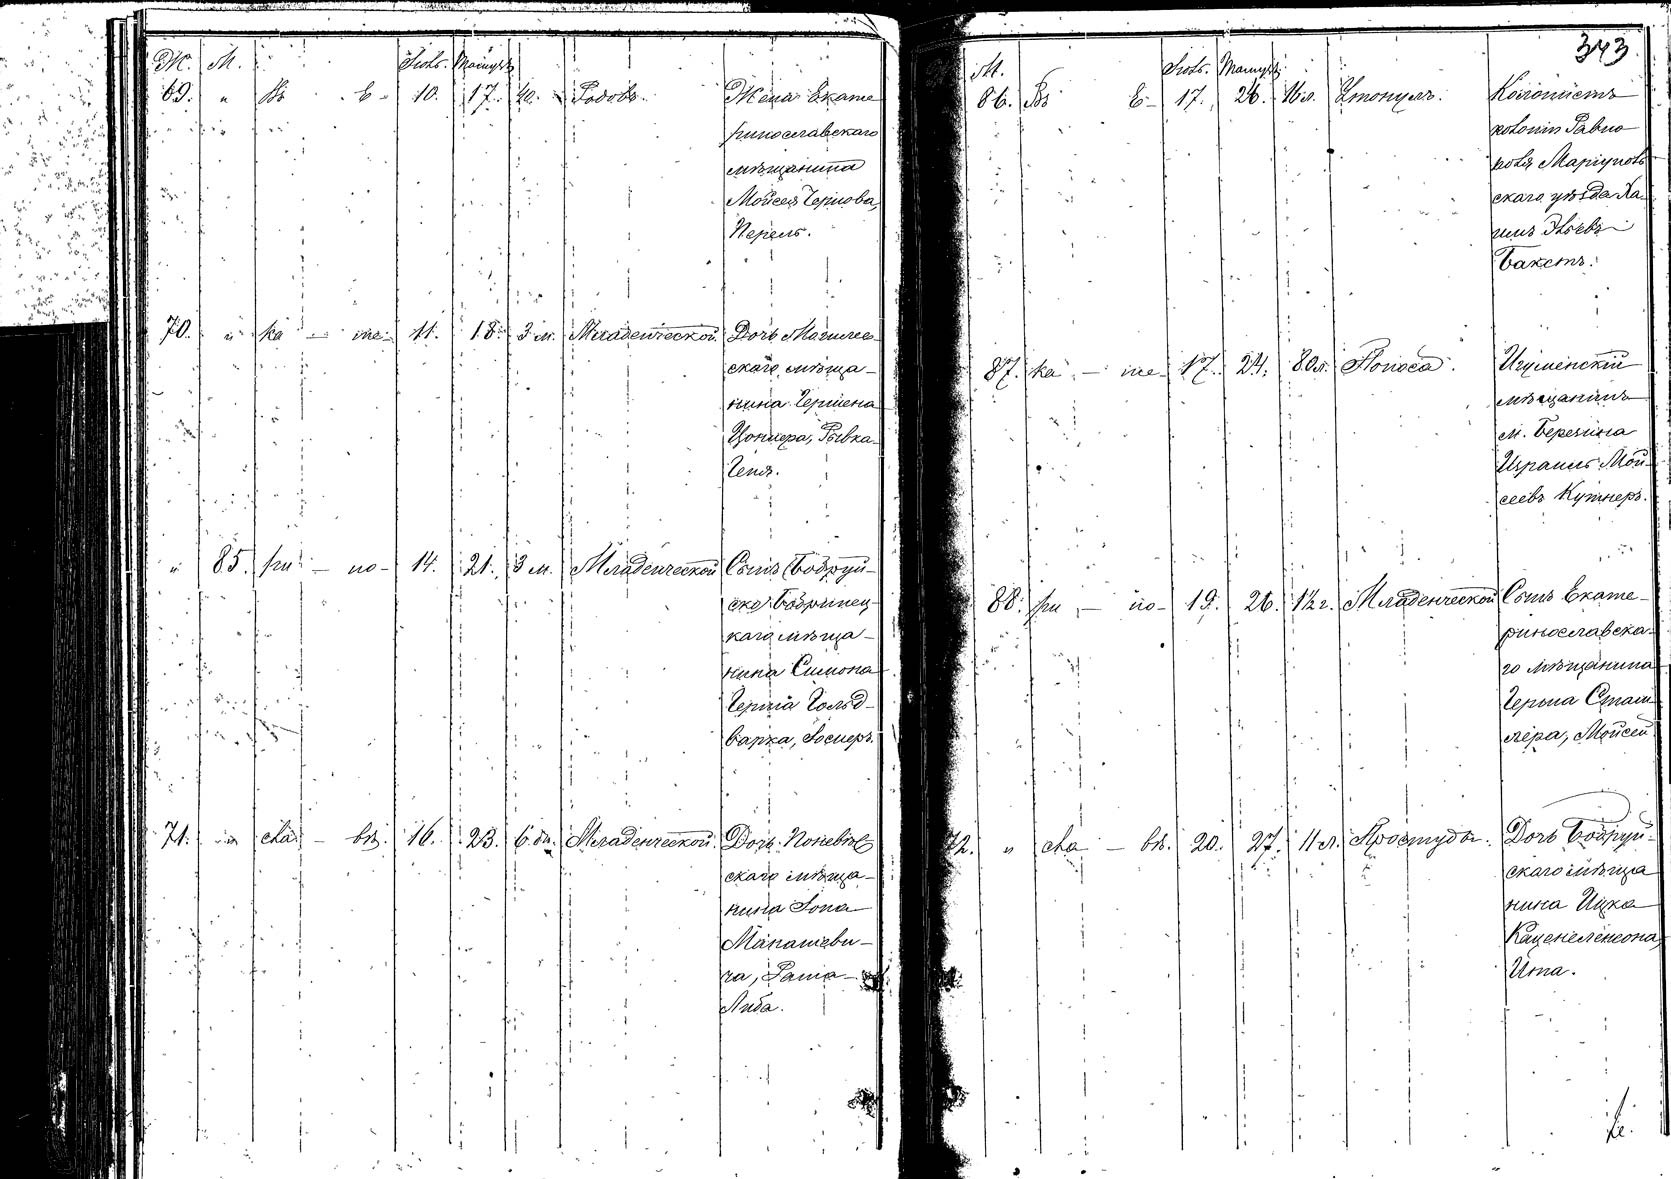 Ж. М. Іюль. Тамузъ
69. " Въ Е- 10. 17. 40. Родовъ. Жена Екате
ринославскаго
мѣщанина
Мойсея Чернова,
Перель.
70. " ка — те- 11. 18. 3 м. Младенческой. Дочь Могилев-
скаго мѣща-
нина Гершена
Рывка-
Геня.
" 85. ри — но- 14. 21. 3 м. Младенческой Сынъ Бобруй-
ско Бобринец-
каго мѣща-
нина Симона
Гершa Гольд-
варха, Іосперъ.
71. " сла — въ. 16. 23. 6 дн. Младенческой. Дочь Поневѣж
скаго мѣща-
нина Іона
Манашеви-
ча, Раша-
Либа.
343
М. Іюль. Тамузъ
86. Въ Е- 17. 26. 16 л. Утонулъ. Колонистъ
колоніи Равно
поля Маріуполь
скаго уѣзда Ха-
имъ
Бакстъ.
87. ка — те- 17. 24. 80 л. Поноса. Игуменскій
мѣщанинъ
м. Березина
Израиль Мой-
сеевъ Кушнеръ.
88. ри — но- 19. 26. 1½ г. Младенческой Сынъ Екате-
ринославска-
го мѣщанина
Герша
Мойсей
72. " сла — въ. 20. 27. 11 л. Простуды. Дочь Бобруй-
скаго мѣща
нина Ицка
Каценеленсона,
Ита.